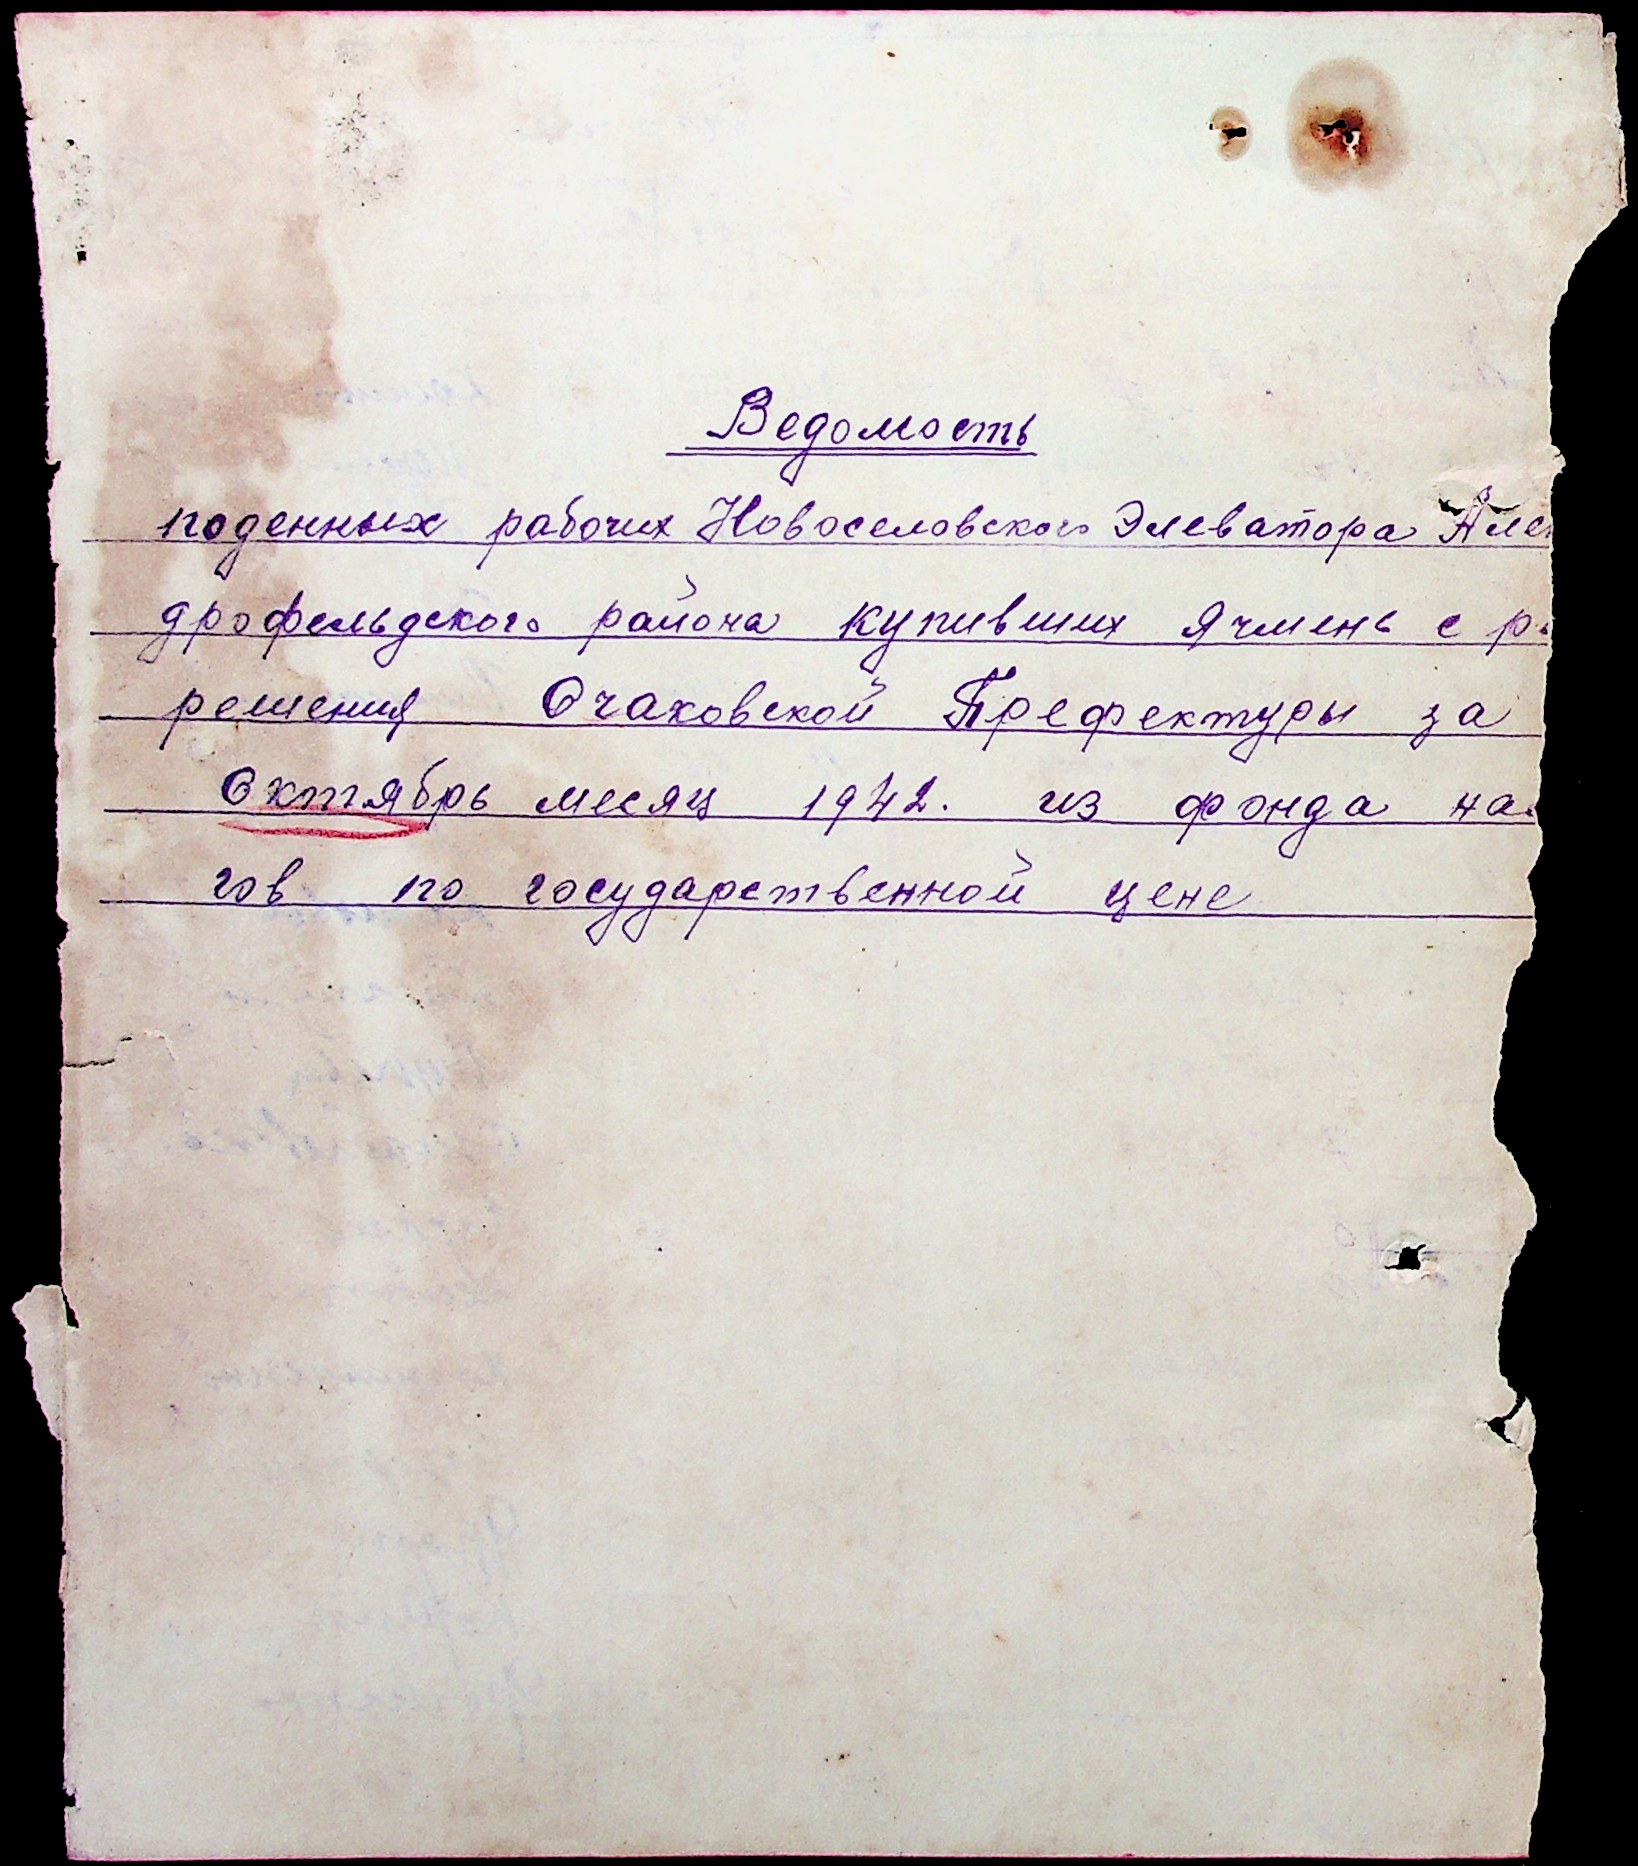 Ведомость
поденных рабочих Новоселовского Элеватора Але
дрофельдского района купивших ячмень с р
решения Очаковской Префектуры за
Октябрь месяц 1942. из фонда на
гов по государственной цене